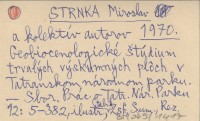 STRNKA Miroslav
a kolektív autorov 1970.
Geobiocenologické štúdium
trvalých výskumných plôch v
Tatranskom národnom parku.
Sbor. Prác Tatr. Nár. Parku
12: 5-382, ilustr., Sum., Rez.